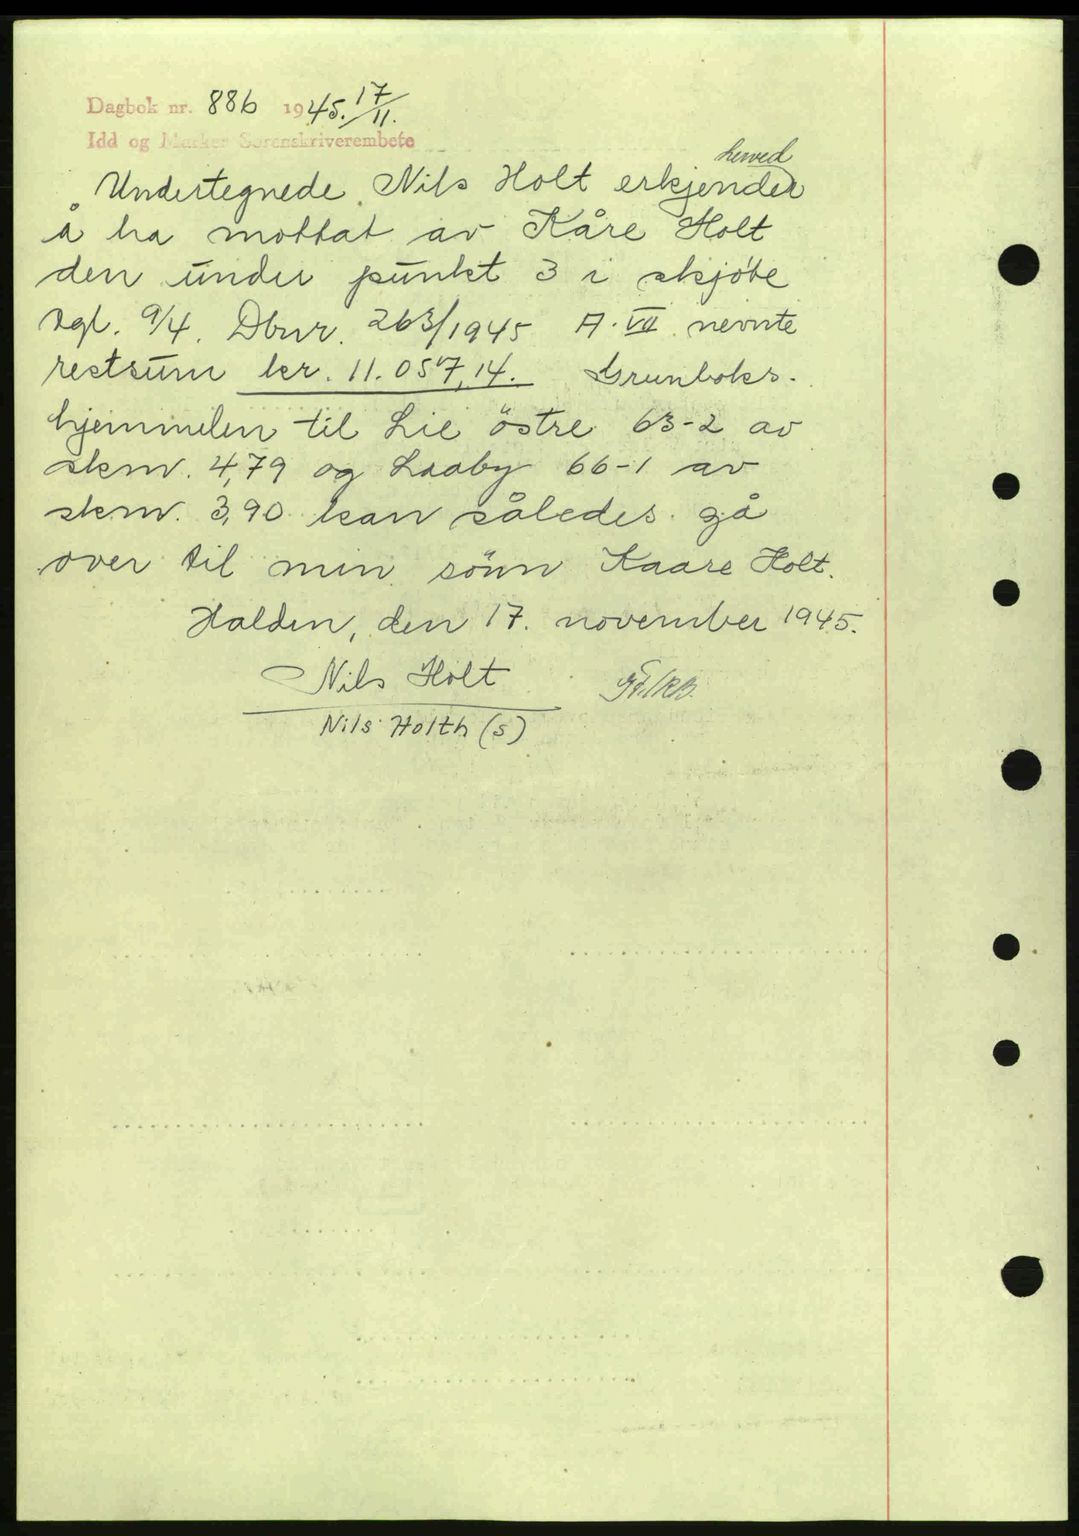 Dagbok nr. 886 1945. 17/11.
Idd og Marker Sorenskriverembete
herved
Undertegnede Nils Holt erkjender
å ha mottat av Kåre Holt
den under punkt 3 i skjöte
tgl. 9/4. Dbnr. 263/1945 A. VII nevnte
restsum kr. 11.057,14. Grunboks-
hjemmelen til Lie östre 63-2 av
skm. 4,79 og Laaby 66-1 av
skm. 3,90 kan således gå
over til min sönn Kaare Holt.
Halden, den 17. november 1945.
Nils Holt
Nils Holth (s)